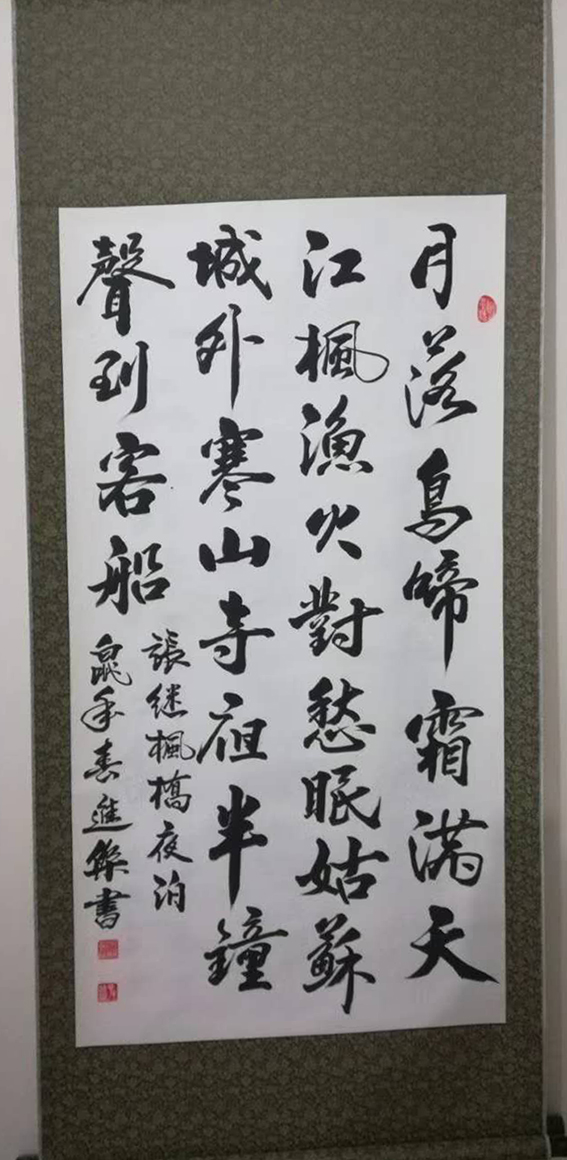 月落烏啼霜滿天
江楓漁火對愁眠姑蘇
城外寒山寺夜半鐘
聲到客船
張继楓橋夜泊
鼠年春進書